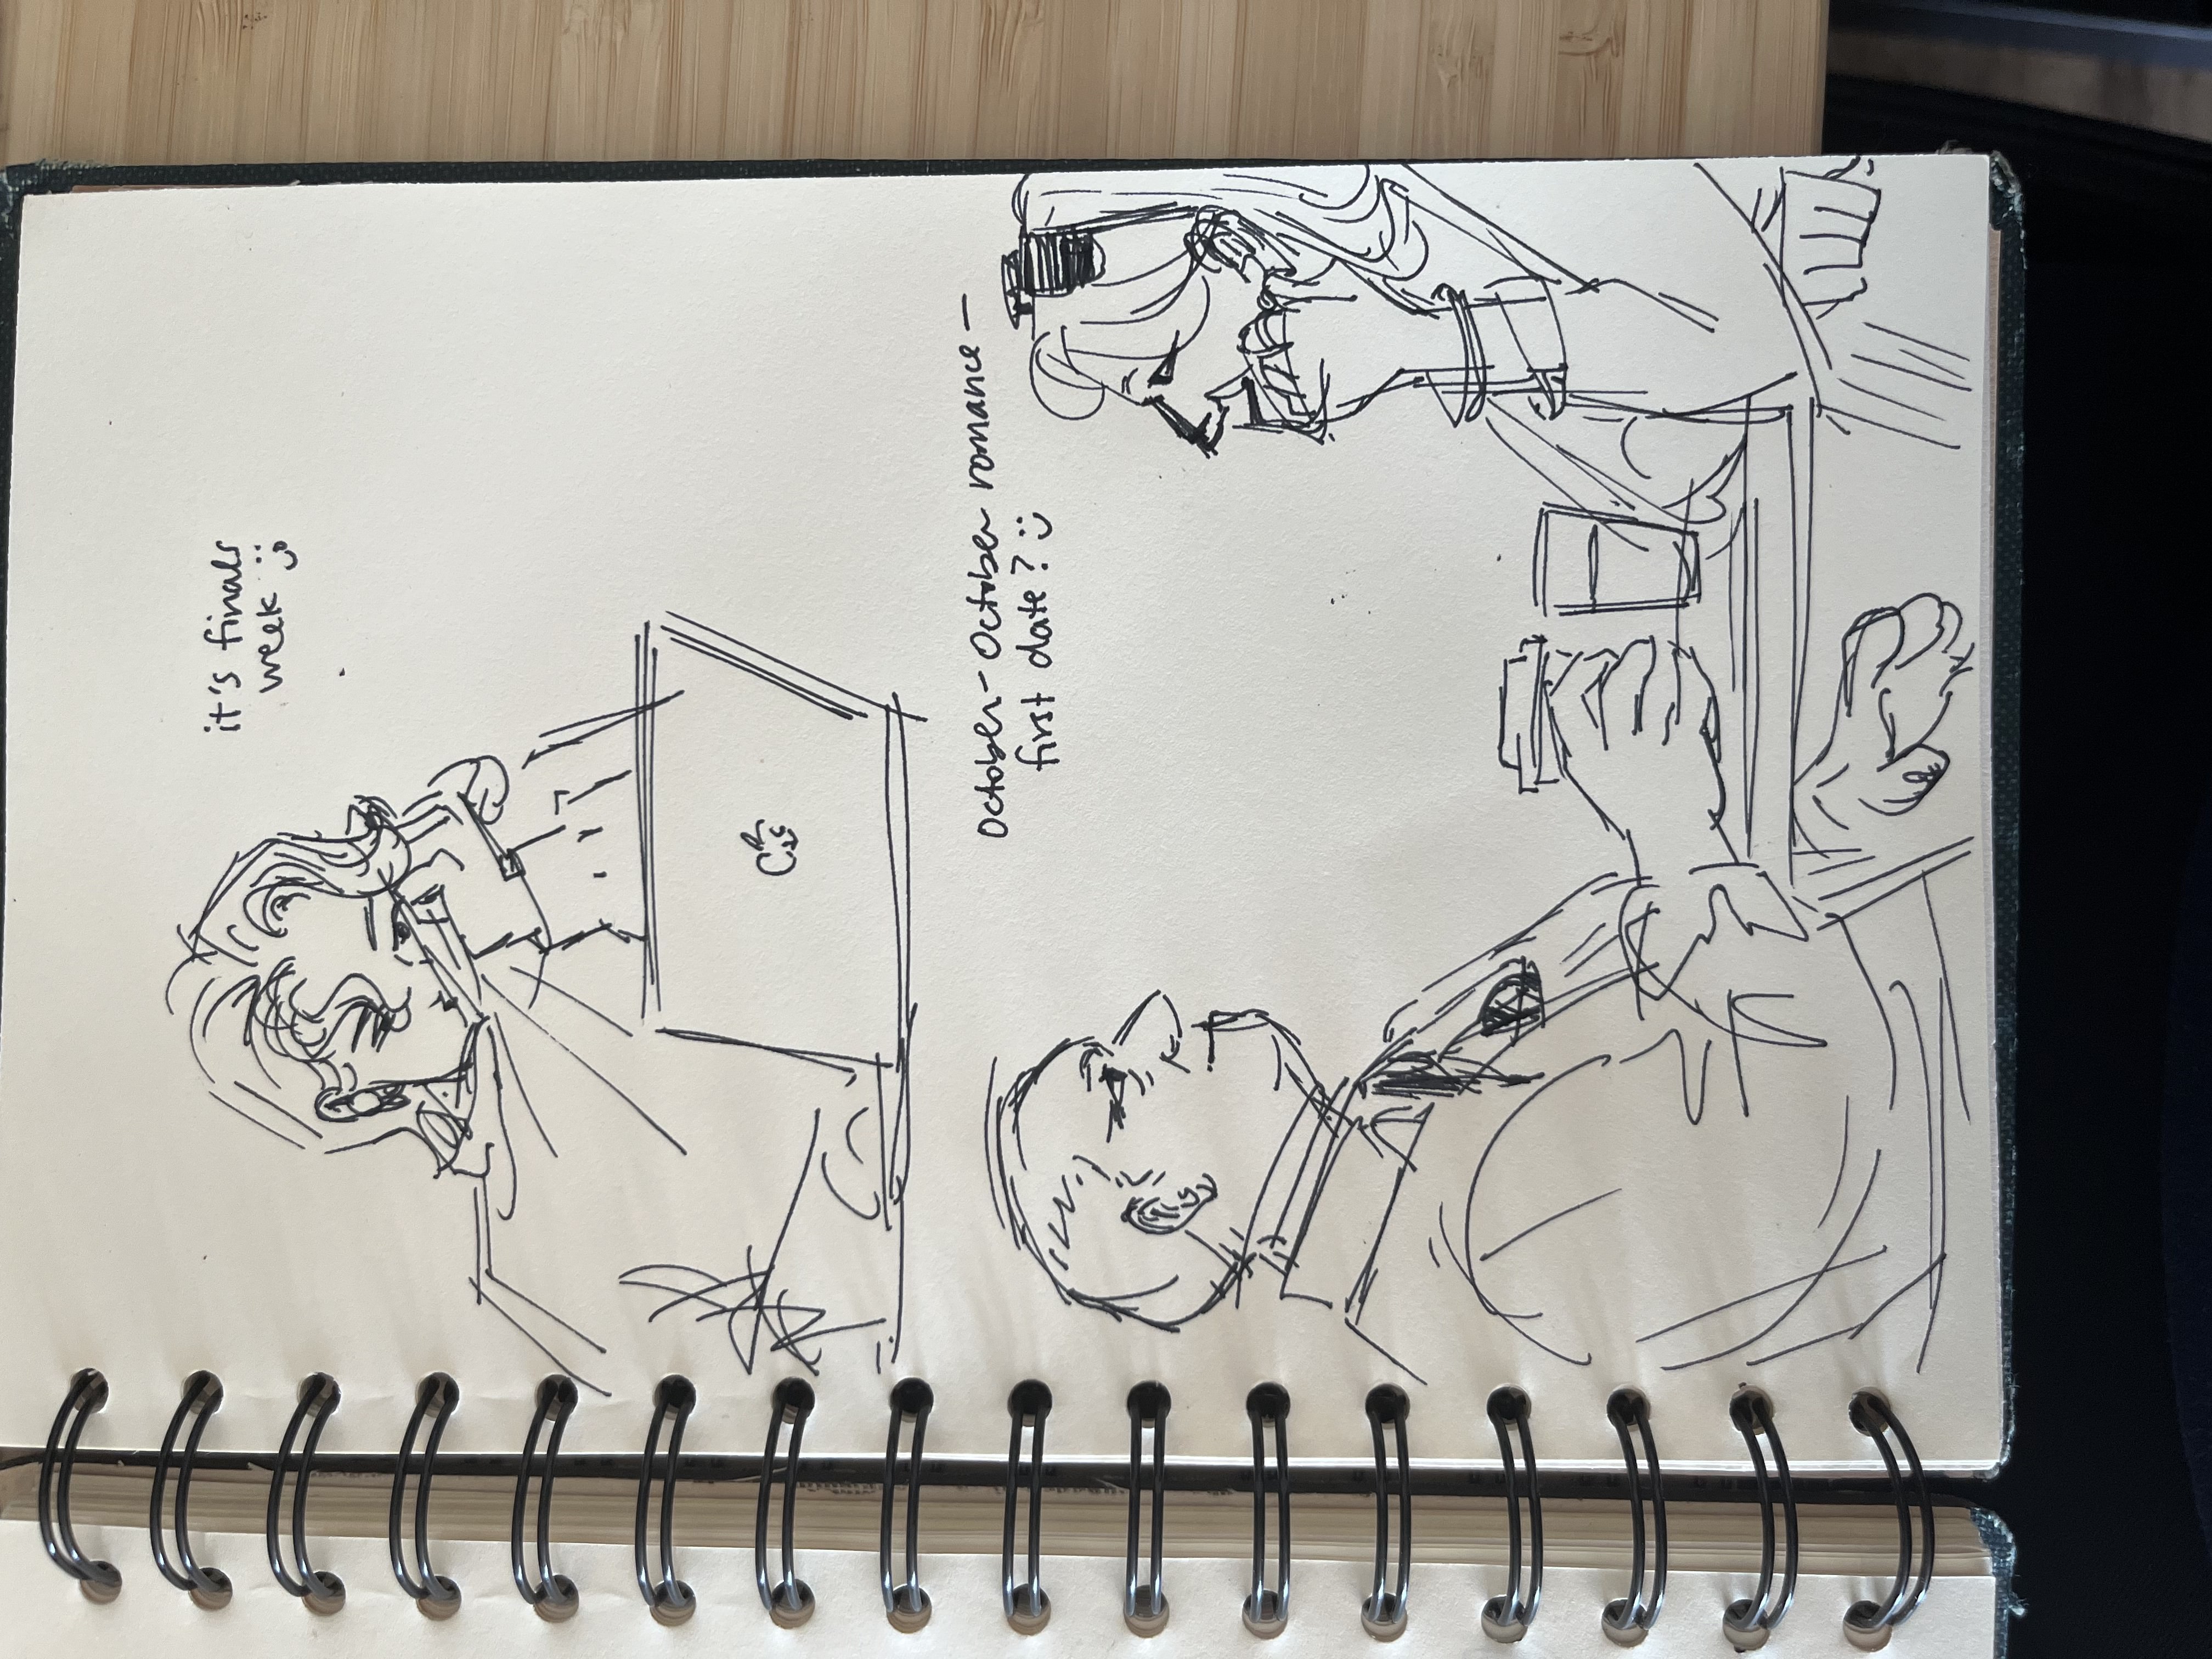 it's finals
week :)
October-October romance-
first date? :)